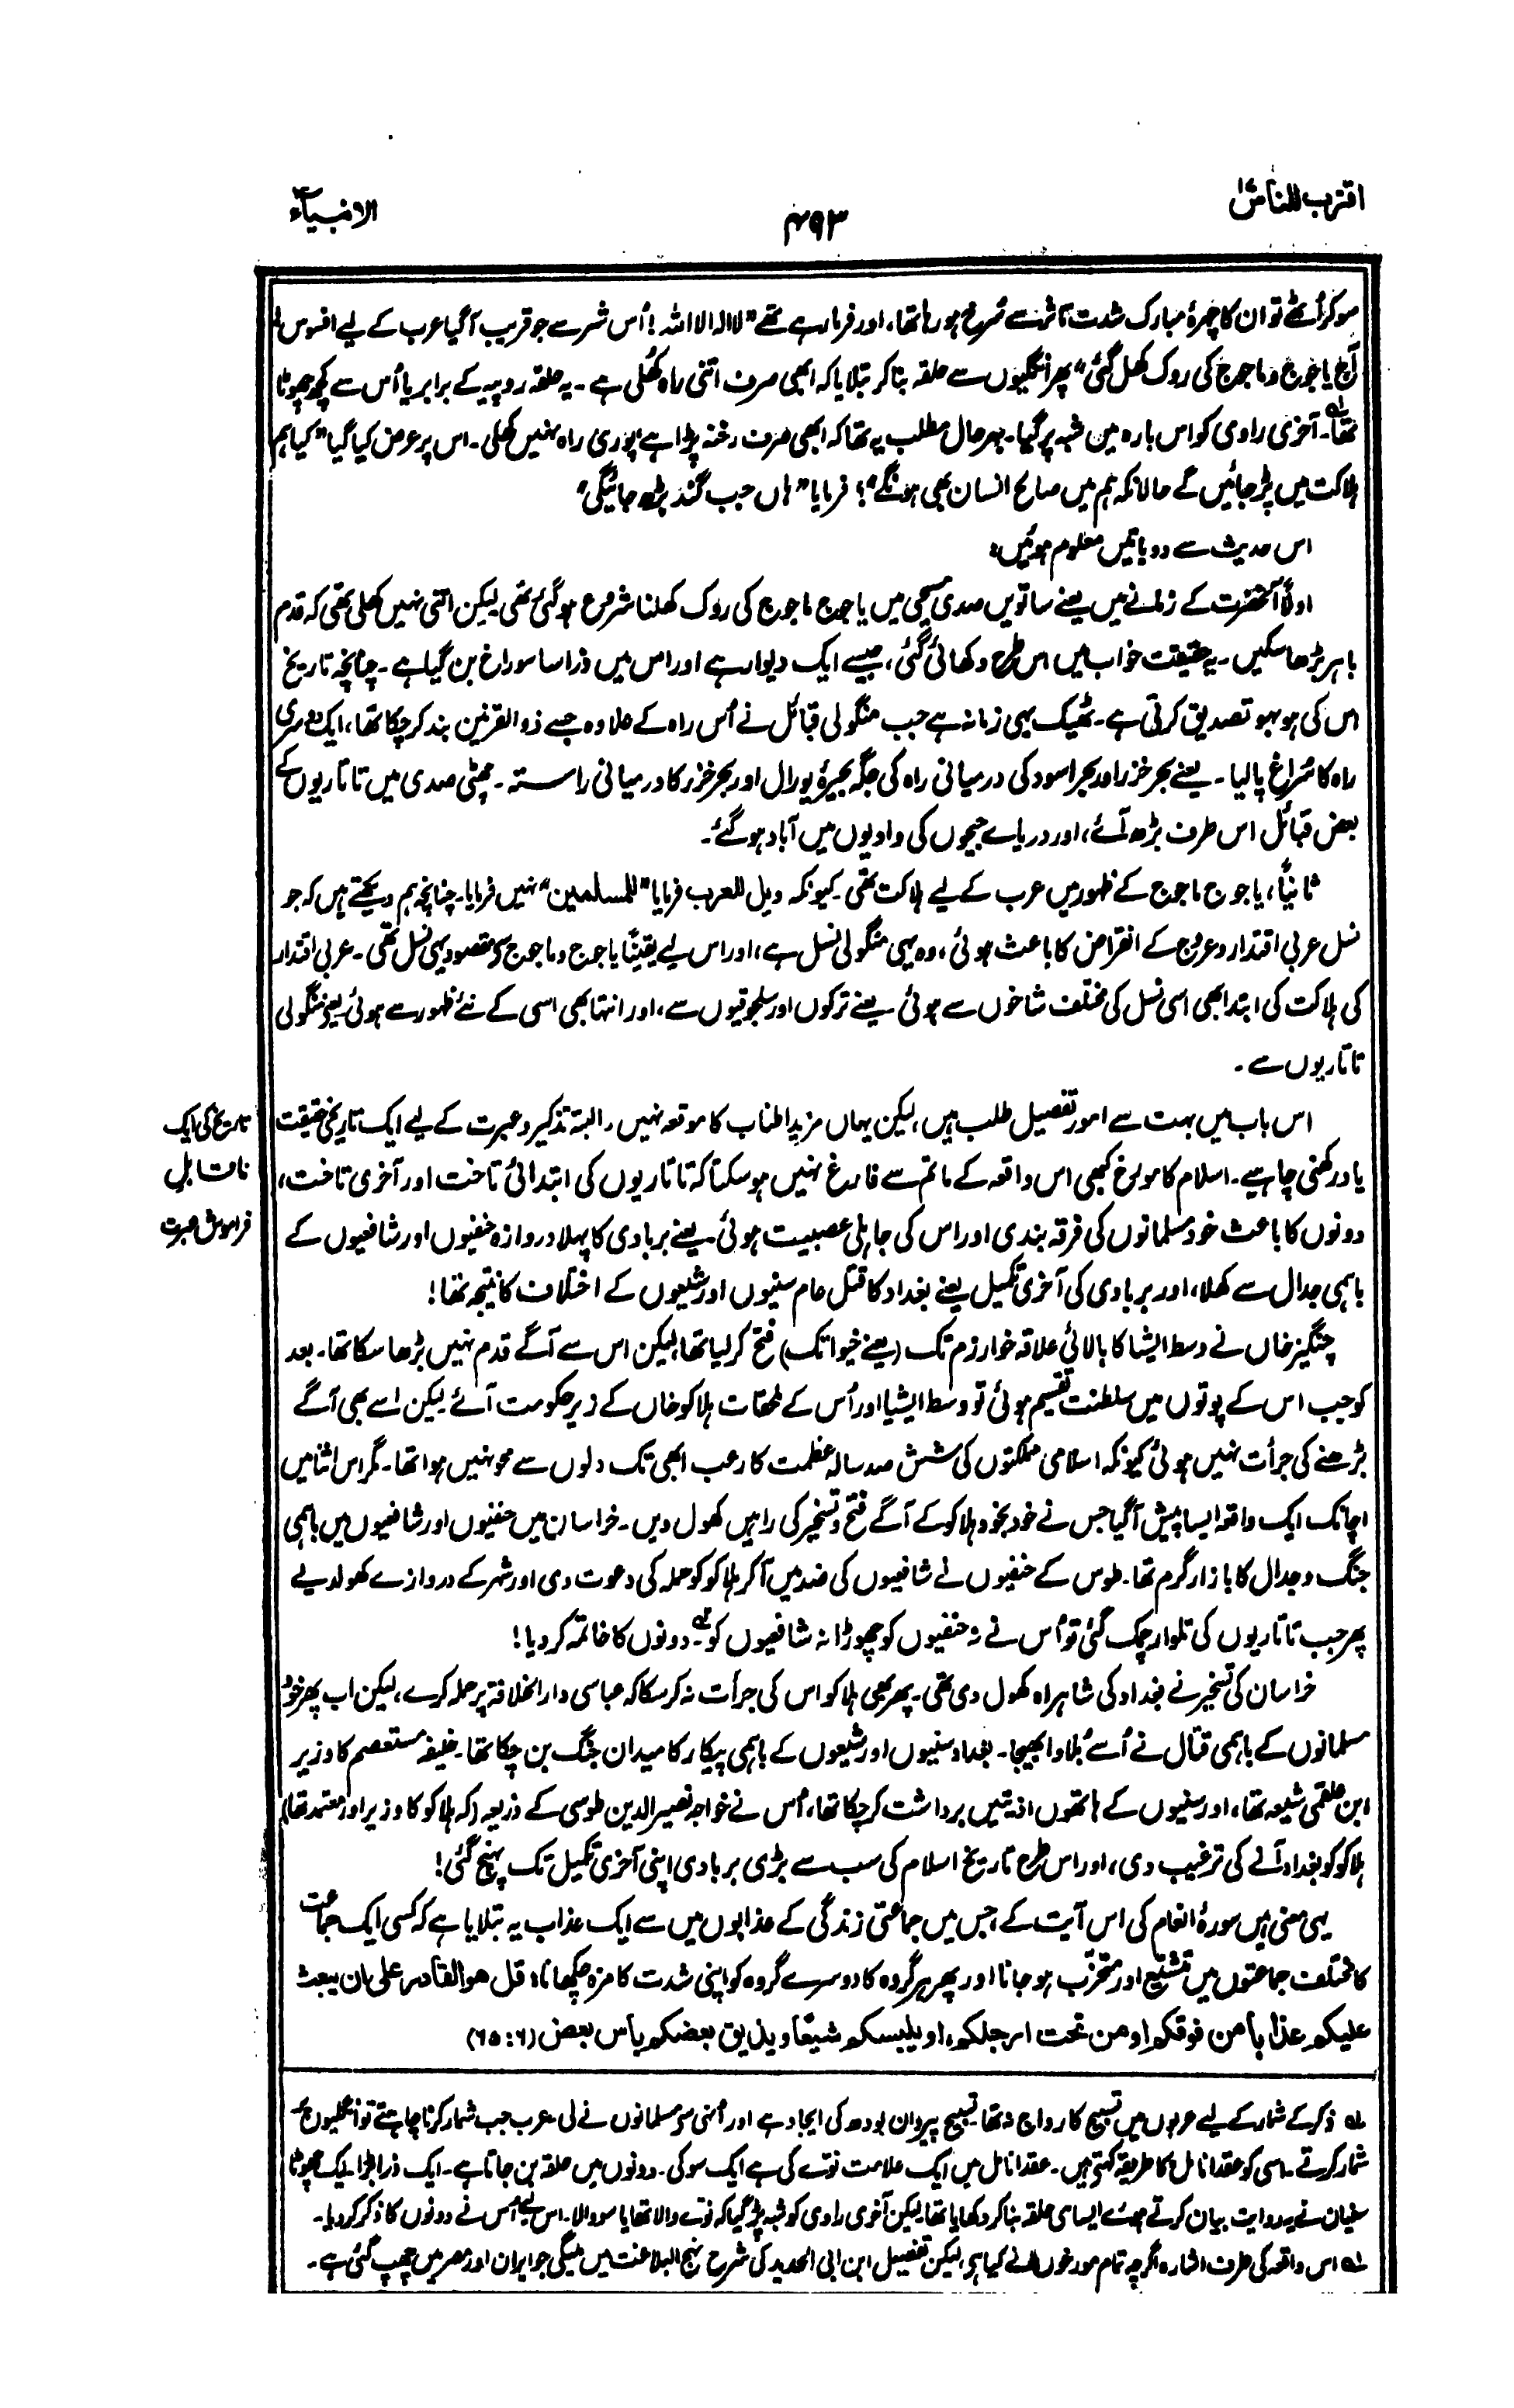 اقترب للناس ۱۷
۴۹۳
الانبیاء
سوکر اُٹھے تو ان کا چہرۂ مبارک شدت تاثر سے سُرخ ہو رہا تھا، اور فرما رہے تھے "لا الہ الا اللہ! اُس شر سے جو قریب آگیا عرب کے لیے افسوس!
آج یاجوج و ماجوج کی روک کھل گئی" پھر انگلیوں سے حلقہ بنا کر بتلایا کہ ابھی صرف اتنی راہ کھُلی ہے۔ یہ حلقہ روپیہ کے برابر یا اُس سے کچھ چھوٹا
تھا۔ آخری راوی کو اس بارہ میں شبہ پڑ گیا۔ بہرحال مطلب یہ تھا کہ ابھی صرف رخنہ پڑا ہے پوری راہ نہیں کھلی۔ اس پر عرض کیا گیا "کیا ہم
ہلاکت میں پڑ جائیں گے حالانکہ ہم میں صالح انسان بھی ہونگے"؟ فرمایا "ہاں جب گند بڑھ جائیگی"
اس حدیث سے دو باتیں معلوم ہوئیں:
اولاً آنحضرت کے زمانے میں یعنے ساتویں صدی مسیحی میں یاجوج ماجوج کی روک کھلنا شروع ہو گئی تھی لیکن اتنی نہیں کھلی تھی کہ قدم
باہر بڑھا سکیں۔ یہ حقیقت خواب میں اس طرح دکھائی گئی، جیسے ایک دیوار ہے اور اس میں ذرا سا سوراخ بن گیا ہے۔ چنانچہ تاریخ
اس کی ہو بہو تصدیق کرتی ہے۔ ٹھیک یہی زمانہ ہے جب منگولی قبائل نے اُس راہ کے علاوہ جسے ذوالقرنین بند کر چکا تھا، ایک دوسری
راہ کا سُراغ پالیا۔ یعنے بحر خزر اور بحر اسود کی درمیانی راہ کی جگہ بحیرۂ یورال اور بحر خزر کا درمیانی راستہ۔ چھٹی صدی میں تاتاریوں کے
بعض قبائل اس طرف بڑھ آئے، اور دریاے جیحوں کی وادیوں میں آباد ہو گئے۔
ثانیاً، یاجوج ماجوج کے ظہور میں عرب کے لیے ہلاکت تھی۔ کیونکہ ویل للعرب فرمایا "للمسلمین" نہیں فرمایا۔ چنانچہ ہم دیکھتے ہیں کہ جو
نسل عربی اقتدار و عروج کے انقراض کا باعث ہوئی، وہ یہی منگولی نسل ہے، اور اس لیے یقیناً یاجوج و ماجوج سے مقصود یہی نسل تھی۔ عربی اقتدار
کی ہلاکت کی ابتدا بھی اسی نسل کی مختلف شاخوں سے ہوئی۔ یعنے ترکوں اور سلجوقیوں سے، اور انتہا بھی اسی کے نئے ظہور سے ہوئی یعنے منگولی
تاتاریوں سے۔
اس باب میں بہت سے امور تفصیل طلب ہیں، لیکن یہاں مزید اطناب کا موقعہ نہیں۔ البتہ تذکیر و عبرت کے لیے ایک تاریخی حقیقت
یاد رکھنی چاہیے۔ اسلام کا مورخ کبھی اس واقعہ کے ماتم سے فارغ نہیں ہو سکتا کہ تاتاریوں کی ابتدائی تاخت اور آخری تاخت،
دونوں کا باعث خود مسلمانوں کی فرقہ بندی اور اس کی جاہلی عصبیت ہوئی۔ یعنے بربادی کا پہلا دروازہ حنفیوں اور شافعیوں کے
باہمی جدال سے کھلا، اور بربادی کی آخری تکمیل یعنے بغداد کا قتل عام سنیوں اور شیعوں کے اختلاف کا نتیجہ تھا!
تاریخ کی ایک
ناقابلِ
فراموش عبرت
چنگیز خاں نے وسط ایشا کا بالائی علاقہ خوارزم تک (یعنے خیوا تک) فتح کر لیا تھا، لیکن اس سے آگے قدم نہیں بڑھا سکا تھا۔ بعد
کو جب اس کے پوتوں میں سلطنت تقسیم ہوئی تو وسط ایشیا اور اُس کے ملحقات ہلاکو خاں کے زیر حکومت آئے لیکن اسے بھی آگے
بڑھنے کی جرأت نہیں ہوئی کیونکہ اسلامی مملکتوں کی شش صد سالہ عظمت کا رعب ابھی تک دلوں سے محو نہیں ہوا تھا۔ مگر اس اثنا میں
اچانک ایک واقعہ ایسا پیش آگیا جس نے خود بخود ہلاکو کے آگے فتح و تسخیر کی راہیں کھول دیں۔ خراسان میں حنفیوں اور شافعیوں میں باہمی
جنگ و جدال کا بازار گرم تھا۔ طوس کے حنفیوں نے شافعیوں کی ضد میں آکر ہلاکو کو حملہ کی دعوت دی اور شہر کے دروازے کھول دیے
پھر جب تاتاریوں کی تلوار چمک گئی تو اُس نے نہ حنفیوں کو چھوڑا نہ شافعیوں کو۔ دونوں کا خاتمہ کر دیا!
خراسان کی تسخیر نے بغداد کی شاہراہ کھول دی تھی۔ پھر بھی ہلاکو اس کی جرأت نہ کر سکا کہ عباسی دارالخلافۃ پر حملہ کرے، لیکن اب پھر خود
مسلمانوں کے باہمی قتال نے اُسے بُلاوا بھیجا۔ بغداد سنیوں اور شیعوں کے باہمی پیکار کا میدان جنگ بن چکا تھا۔ خلیفہ مستعصم کا وزیر
ابن علقمی شیعہ تھا، اور سنیوں کے ہاتھوں اذیتیں برداشت کر چکا تھا، اُس نے خواجہ نصیر الدین طوسی کے ذریعہ (کہ ہلاکو کا وزیر اور معتمد تھا)
ہلاکو کو بغداد آنے کی ترغیب دی، اور اس طرح تاریخ اسلام کی سب سے بڑی بربادی اپنی آخری تکمیل تک پہنچ گئی!
یہی معنی ہیں سورۂ انعام کی اس آیت کے، جس میں جماعتی زندگی کے عذابوں میں سے ایک عذاب یہ بتلایا ہے کہ کسی ایک جماعت
کا مختلف جماعتوں میں متشیع اور متحزب ہو جانا اور پھر ہر گروہ کا دوسرے گروہ کو اپنی شدت کا مزہ چکھانا: قل هو القادر علی ان یبعث
علیکم عذابا من فوقکم اومن تحت ارجلکم، او یلبسکم شیعًا و یذیق بعضکم باس بعض (۶:۶۵)
۱ے ذکر کے شمار کے لیے عربوں میں تسبیح کا رواج نہ تھا۔ تسبیح پیروان بودھ کی ایجاد ہے اور اُنہی سے مسلمانوں نے لی۔ عرب جب شمار کرنا چاہتے تو انگلیوں پر
شمار کرتے۔ اسی کو عقد انامل کا طریقہ کہتے ہیں۔ عقد انامل میں ایک علامت نوّے کی ہے ایک سو کی۔ دونوں میں حلقہ بن جاتا ہے۔ ایک ذرا بڑا ایک چھوٹا
سفیان نے یہ روایت بیان کرتے ہوئے ایسا ہی حلقہ بنا کر دکھایا تھا، لیکن آخری راوی کو شبہ پڑ گیا کہ نوّے والا تھا یا سو والا۔ اس لیے اُس نے دونوں کا ذکر کر دیا۔
۲ے اس واقعہ کی طرف اشارہ اگرچہ تمام مورخوں نے کیا ہے، لیکن تفصیل ابن ابی الحدید کی شرح نہج البلاغت میں ملیگی جو ایران اور مصر میں چھپ گئی ہے۔